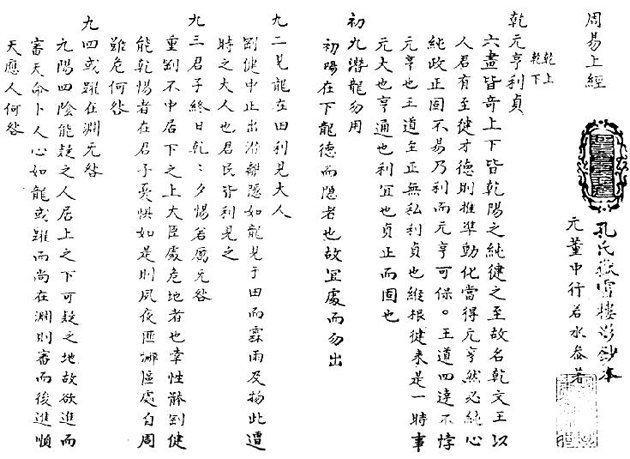 周易上經
孔氏嶽雪樓影鈔本
元董中行若水叅著
乾上
乾下
乾元亨利貞
六畫皆竒上下皆乾陽之純健之至故名乾文王以
人君有至健才德則推準動化當得元亨然必純心
純政正固不易乃利而元亨可保。王道四達不悖
元亨也王道至正無私利貞也維根健来是一時事
元大也亨通也利宜也貞正而固也
初九潛龍勿用
初陽在下龍德而隱者也故宜處而勿出
九二見龍在田利見大人
剛健中正出治離隱如龍見于田而霖雨及物此遭
時之大人也君民皆利見之
九三君子終日乾〻夕惕若厲无咎
重剛不中居下之上大臣處危地者也幸性體剛健
能乾惕者在君子憂惧如是則夙夜匪懈區處自周
雖危何咎
九四或躍在淵无咎
九陽四陰能疑之人居上之下可疑之地故欲進而
審天命卜人心如龍或躍而尚在淵則審而後進順
天應人何咎